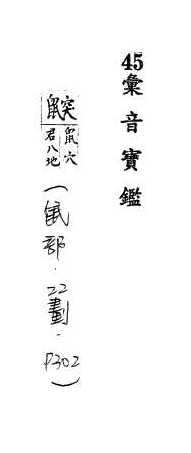 45彙音寶鑑
鼵
鼠穴
君八地
(鼠部．22劃．P302)